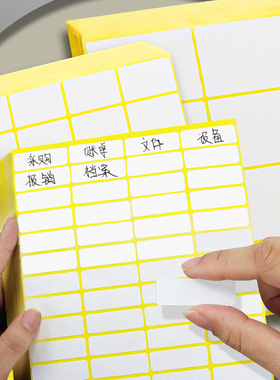 采购 账单 文件 设备
报销 档案